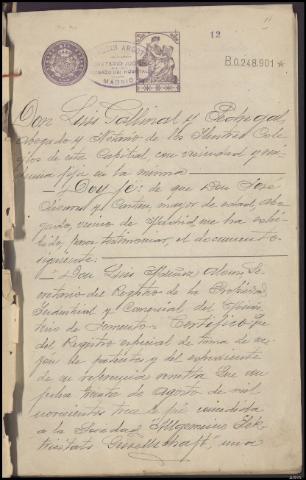 12
B.0.248.901 *
MADRID
Don Luis Gallinal y Pedregal,
Abogado y Notario de los Ilustres Cole
gios de esta Capital, con vecindad y re
sidencia fija en la misma
Doy fé: de que Don José
mayor de edad, abo
gado, vecino de Madrid, me ha exhi
bido, para testimoniar, el documento
siguiente:
Don Luis Se
cretario del Registro de la Propiedad
Industrial y Comercial del Minis
terio de Fomento. Certifico: que
del Registro especial de toma de ra
zón de patentes y del expediente
de su referencia resulta que en
treinta de Agosto de mil
novecientos tres le fué concedida
a la Sociedad Allgemeine Elek
tricitats Gesellschaft, una